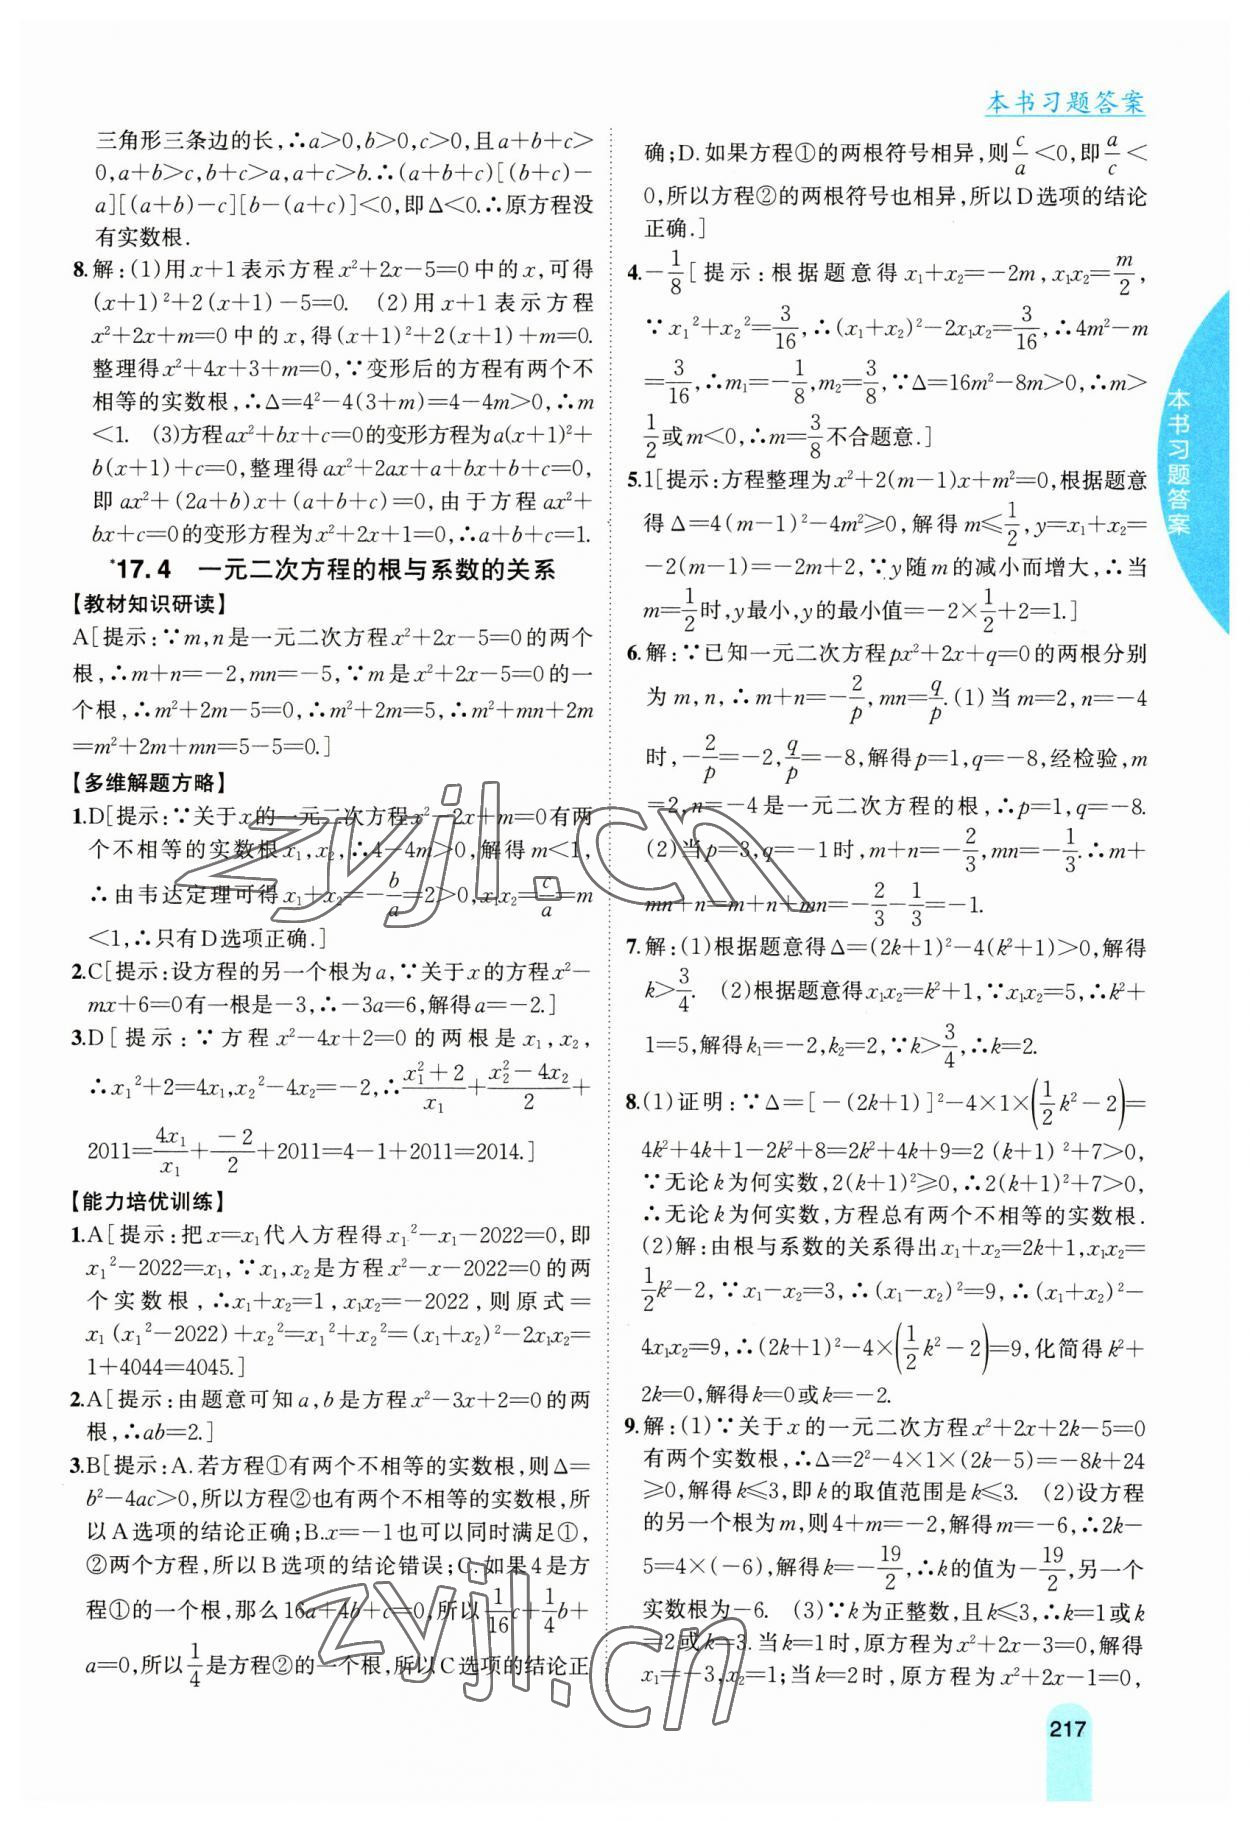 本书习题答案
三角形三条边的长,∴a>0,b>0,c>0,且a+b+c>
0,a+b>c,b+c>a,a+c>b.∴(a+b+c)[(b+c)-
a][(a+b)-c][b-(a+c)]<0,即Δ<0.∴原方程没
有实数根.
8.解:(1)用x+1表示方程x²+2x-5=0中的x,可得
(x+1)²+2(x+1)-5=0. (2)用x+1表示方程
x²+2x+m=0中的x,得(x+1)²+2(x+1)+m=0.
整理得x²+4x+3+m=0,∵变形后的方程有两个不
相等的实数根,∴Δ=4²-4(3+m)=4-4m>0,∴m
<1. (3)方程ax²+bx+c=0的变形方程为a(x+1)²+
b(x+1)+c=0,整理得ax²+2ax+a+bx+b+c=0,
即ax²+(2a+b)x+(a+b+c)=0,由于方程ax²+
bx+c=0的变形方程为ax²=0,∴a+b+c=1.
*17.4 一元二次方程的根与系数的关系
【教材知识研读】
A[提示:∵m,n是一元二次方程x²+2x-5=0的两个
根,∴m+n=-2,mn=-5,∵m是x²+2x-5=0的一
个根,∴m²+2m-5=0,∴m²+2m=5,∴m²+mn+2m
=m²+2m+mn=5-5=0.]
【多维解题方略】
1.D[提示:∵关于x的一元二次方程x²-2x+m=0有两
个不相等的实数根x₁,x₂,∴4-4m>0,解得m<1,
∴由韦达定理可得x₁+x₂=-b/a=2>0,x₁x₂=c/a=m
<1,∴只有D选项正确.]
2.C[提示:设方程的另一个根为a,∵关于x的方程x²-
mx+6=0有一根是-3,∴-3a=6,解得a=-2.]
3.D[提示:∵方程x²-4x+2=0的两根是x₁,x₂,
∴x₁²+2=4x₁,x₂²-4x₂=-2,∴(x₁²+2)/x₁+(x₂²-4x₂)/2+
2011=4x₁/x₁+-2/2+2011=4-1+2011=2014.]
【能力培优训练】
1.A[提示:把x=x₁代入方程得x₁²-x₁-2022=0,即
x₁²-2022=x₁,∵x₁,x₂是方程x²-x-2022=0的两
个实数根,∴x₁+x₂=1,x₁x₂=-2022,则原式=
x₁(x₁²-2022)+x₂²=x₁²+x₂²=(x₁+x₂)²-2x₁x₂=
1+4044=4045.]
2.A[提示:由题意可知a,b是方程x²-3x+2=0的两
根,∴ab=2.]
3.B[提示:A.若方程①有两个不相等的实数根,则Δ=
b²-4ac>0,所以方程②也有两个不相等的实数根,所
以A选项的结论正确;B.x=-1也可以同时满足①,
②两个方程,所以B选项的结论错误;C.如果4是方
程①的一个根,那么16a+4b+c=0,所以1/16c+1/4b+
a=0,所以1/4是方程②的一个根,所以C选项的结论正
确;D.如果方程①的两根符号相异,则c/a<0,即a/c<
0,所以方程②的两根符号也相异,所以D选项的结论
正确.]
4.-1/8[提示:根据题意得x₁+x₂=-2m,x₁x₂=m/2,
∵x₁²+x₂²=3/16,∴(x₁+x₂)²-2x₁x₂=3/16,∴4m²-m
=3/16,∴m₁=-1/8,m₂=3/8,∵Δ=16m²-8m>0,∴m>
1/2或m<0,∴m=3/8不合题意.]
5.1[提示:方程整理为x²+2(m-1)x+m²=0,根据题意
得Δ=4(m-1)²-4m²≥0,解得m≤1/2,y=x₁+x₂=
-2(m-1)=-2m+2,∵y随m的减小而增大,∴当
m=1/2时,y最小,y的最小值=-2×1/2+2=1.]
6.解:∵已知一元二次方程px²+2x+q=0的两根分别
为m,n,∴m+n=-2/p,mn=q/p.(1)当m=2,n=-4
时,-2/p=-2,q/p=-8,解得p=1,q=-8,经检验,m
=2,n=-4是一元二次方程的根,∴p=1,q=-8.
(2)当p=3,q=-1时,m+n=-2/3,mn=-1/3.∴m+
mn+n=m+n+mn=-2/3-1/3=-1.
7.解:(1)根据题意得Δ=(2k+1)²-4(k²+1)>0,解得
k>3/4. (2)根据题意得x₁x₂=k²+1,∵x₁x₂=5,∴k²+
1=5,解得k₁=-2,k₂=2,∵k>3/4,∴k=2.
8.(1)证明:∵Δ=[-(2k+1)]²-4×1×(1/2k²-2)=
4k²+4k+1-2k²+8=2k²+4k+9=2(k+1)²+7>0,
∵无论k为何实数,2(k+1)²≥0,∴2(k+1)²+7>0,
∴无论k为何实数,方程总有两个不相等的实数根.
(2)解:由根与系数的关系得出x₁+x₂=2k+1,x₁x₂=
1/2k²-2,∵x₁-x₂=3,∴(x₁-x₂)²=9,∴(x₁+x₂)²-
4x₁x₂=9,∴(2k+1)²-4×(1/2k²-2)=9,化简得k²+
2k=0,解得k=0或k=-2.
9.解:(1)∵关于x的一元二次方程x²+2x+2k-5=0
有两个实数根,∴Δ=2²-4×1×(2k-5)=-8k+24
≥0,解得k≤3,即k的取值范围是k≤3. (2)设方程
的另一个根为m,则4+m=-2,解得m=-6,∴2k-
5=4×(-6),解得k=-19/2,∴k的值为-19/2,另一个
实数根为-6. (3)∵k为正整数,且k≤3,∴k=1或k
=2或k=3.当k=1时,原方程为x²+2x-3=0,解得
x₁=-3,x₂=1;当k=2时,原方程为x²+2x-1=0,
本书习题答案
217
zyjl.cn
zyjl.cn